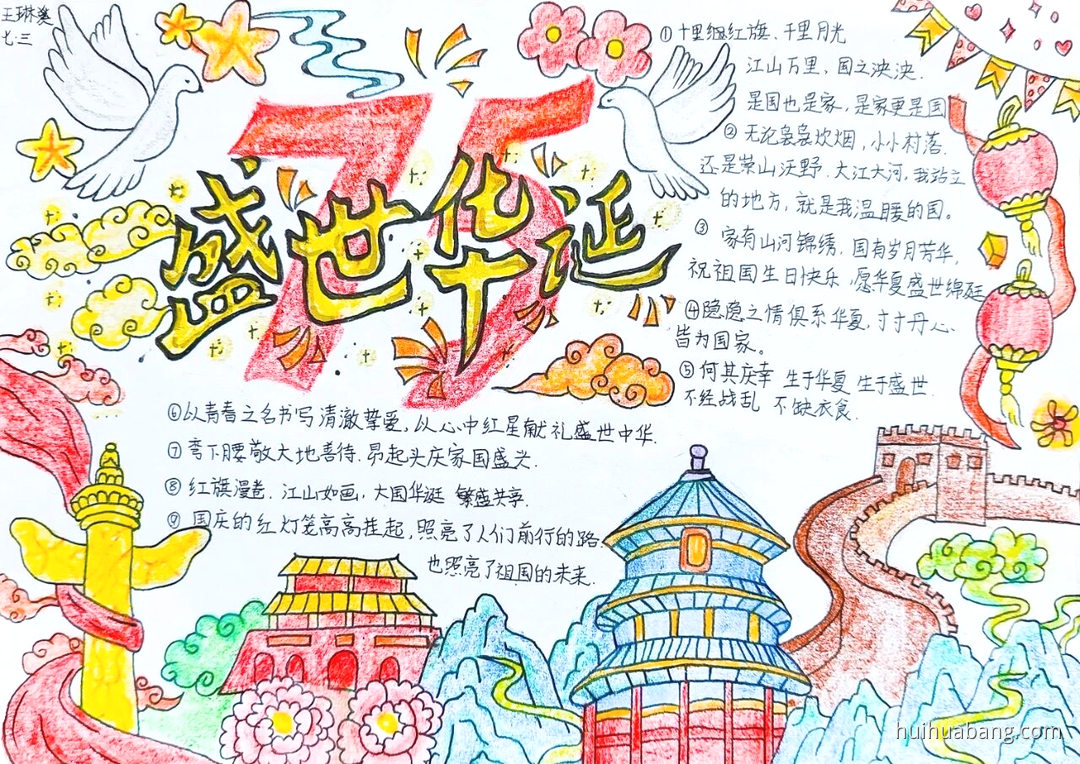 王琳美
七三
75
盛世华诞
①十里红旗、千里月光
江山万里，国之泱泱.
是国也是家，是家更是国
②无论袅袅炊烟，小小村落.
还是崇山沃野.大江大河，我站立
的地方，就是我温暖的国。
③ 家有山河锦绣，国有岁月芳华，
祝祖国生日快乐，愿华夏盛世绵延
④隐隐之情俱系华夏，寸寸丹心
皆为国家。
⑤何其庆幸 生于华夏 生于盛世
不经战乱 不缺衣食.
⑥以青春之名书写清澈挚爱，以心中红星献礼盛世中华.
⑦弯下腰敬大地喜待.昂起头庆家国盛
⑧ 红旗漫卷.江山如画，大国华诞 繁盛共享.
⑨ 国庆的红灯笼高高挂起，照亮了人们前行的路.
也照亮了祖国的未来.
huihuabang.com